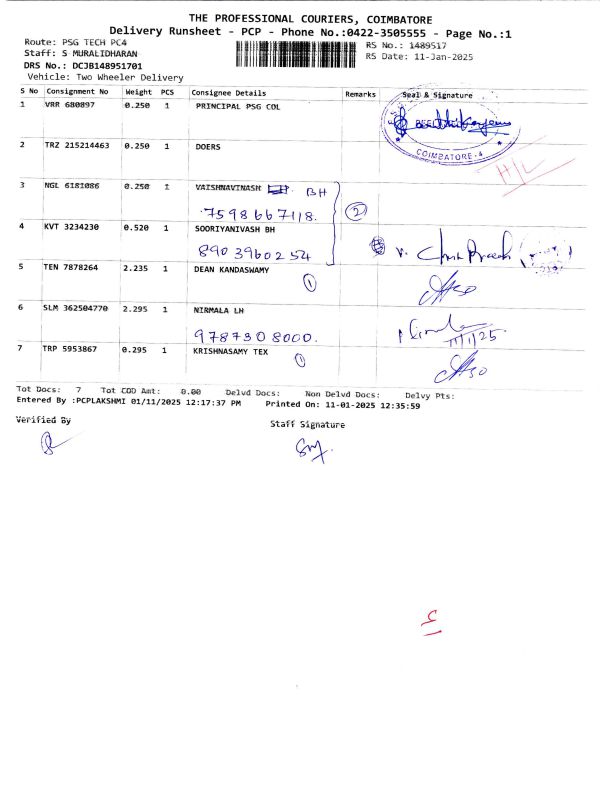 THE PROFESSIONAL COURIERS, COIMBATORE
Delivery Runsheet - PCP - Phone No.:0422-3505555 - Page No.:1
Route: PSG TECH PC4 RS No.: 1489517
Staff: S MURALIDHARAN RS Date: 11-Jan-2025
DRS No.: DCJB148951701
Vehicle: Two Wheeler Delivery
S No Consignment No Weight PCS Consignee Details Remarks Seal & Signature
1 VRR 680897 0.250 1 PRINCIPAL PSG COL
COIMBATORE-4
2 TRZ 215214463 0.250 1 DOERS
H/L
3 NGL 6181086 0.250 1 VAISHNAVINASH BH
7598667118. 2
4 KVT 3234230 0.520 1 SOORIYANIVASH BH
8903960254
5 TEN 7878264 2.235 1 DEAN KANDASWAMY
1
6 SLM 362504770 2.295 1 NIRMALA LH
9787308000. Nirmala
11/1/25
7 TRP 5953867 0.295 1 KRISHNASAMY TEX
1
Tot Docs: 7 Tot COD Amt: 0.00 Delvd Docs: Non Delvd Docs: Delvy Pts:
Entered By :PCPLAKSHMI 01/11/2025 12:17:37 PM Printed On: 11-01-2025 12:35:59
Verified By Staff Signature